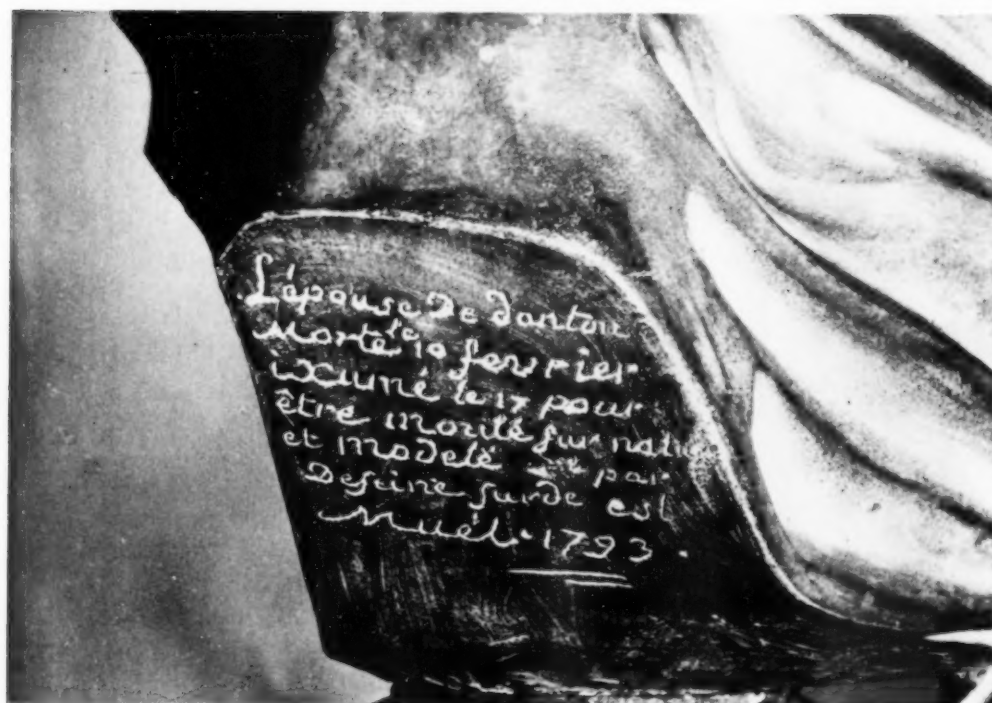 L'épouse De danton
Morte le 10 fevrier
le 17 pour
être moulé sur nature
et modelé par
Deseine surde est
Muét. 1793.